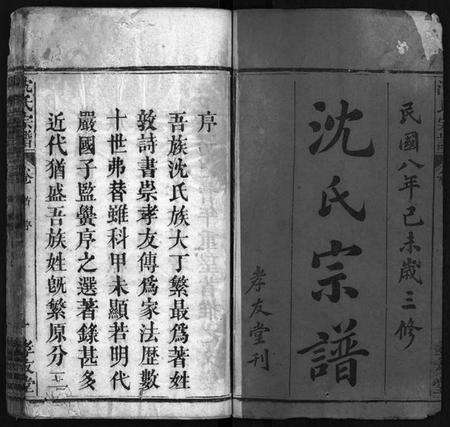 民國八年己未歲三修
沈氏宗譜
孝友堂刊
序
吾族沈氏族大丁繁最爲著姓
敦詩書崇孝友傳爲家法歴數
十世弗替雖科甲未顯若明代
嚴國子監黌序之選著錄甚多
近代猶盛吾族姓旣繁原分
沈氏宗譜
孝友堂